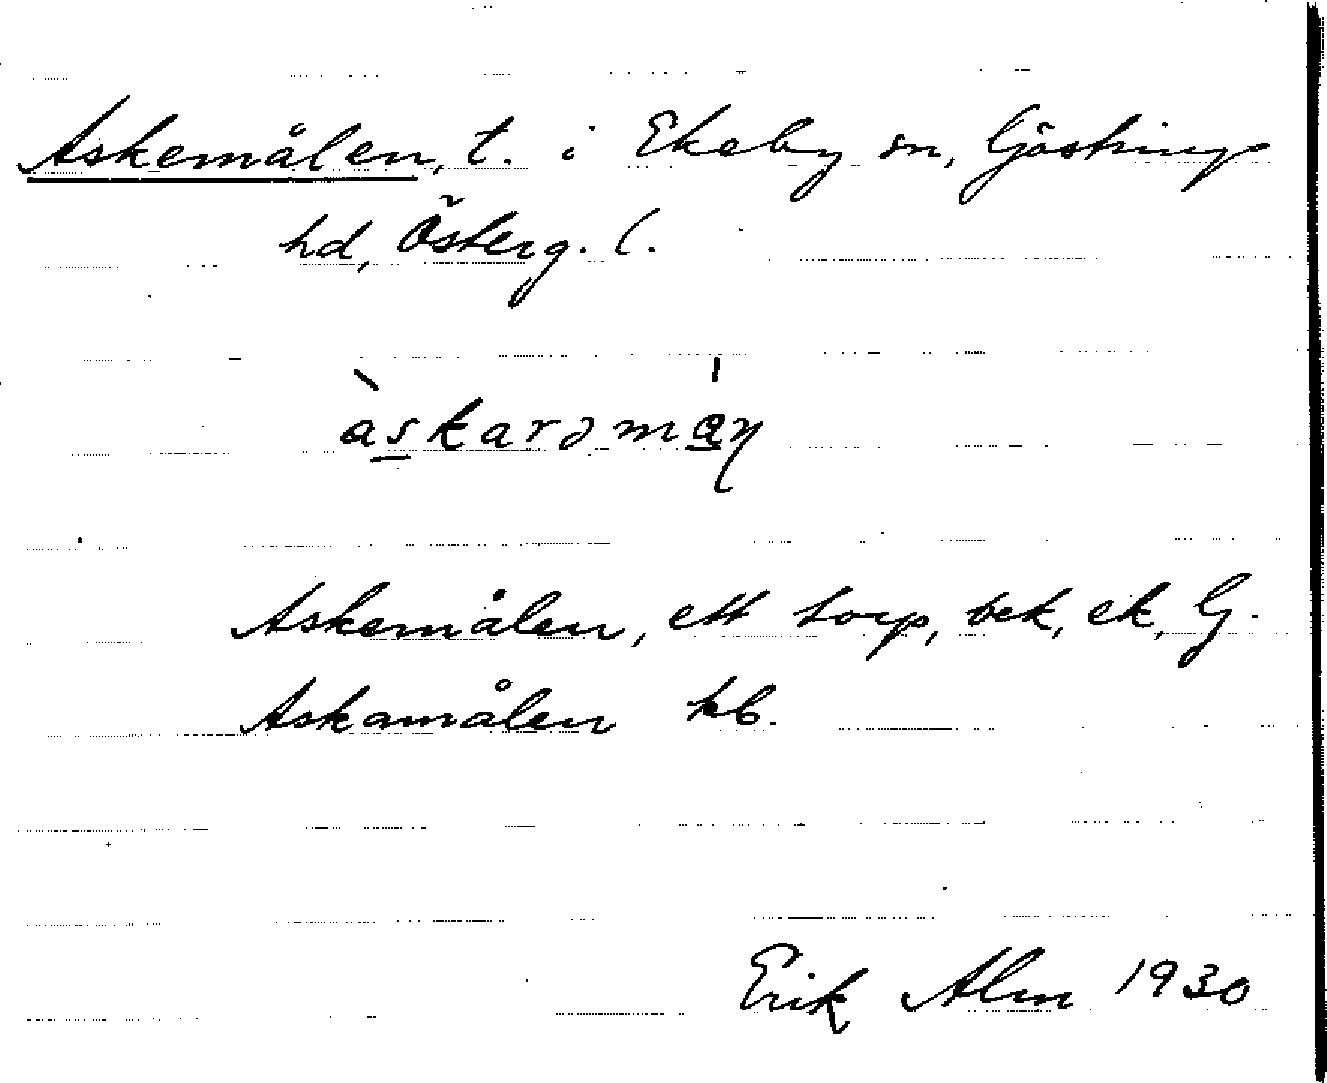 Askemålen, t. i Ekeby sn, Göstrings
hd, Österg. l.
àskarəmáŋ
Askemålen, ett torp, bek, ek, G.
Askamålen kb.
Erik Alm 1930